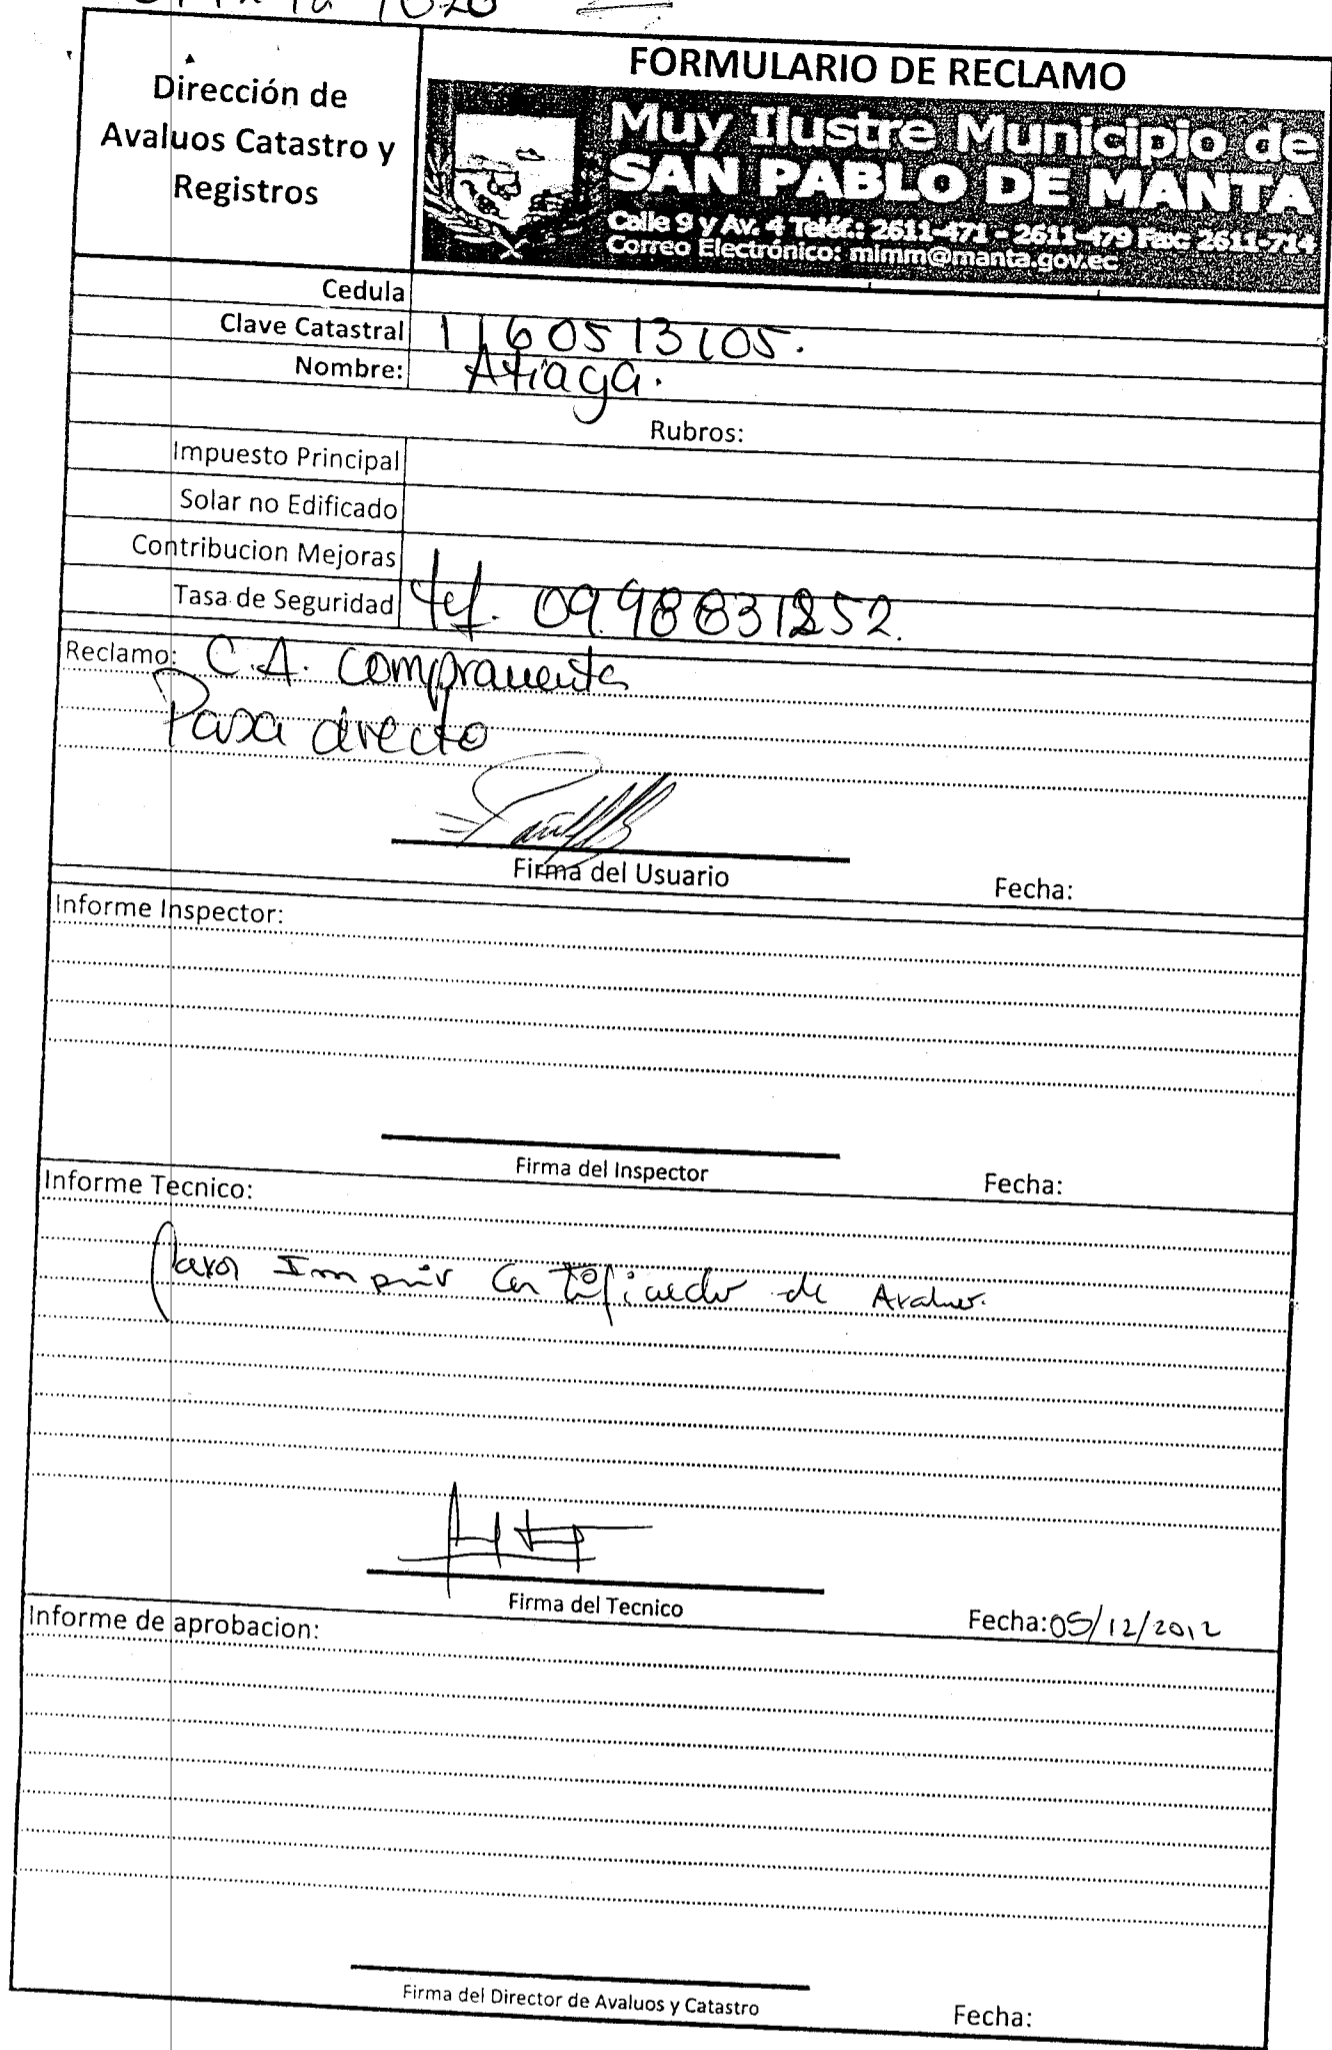 FORMULARIO DE RECLAMO
Dirección de
Avaluos Catastro y
Registros
Muy Ilustre Municipio de
SAN PABLO DE MANTA
Calle 9 y Av. 4 Teléf.: 2611-471 - 2611-479 Fax: 2611-714
Correo Electrónico: mimm@manta.gov.ec
Cedula
Clave Catastral 1160513105.
Nombre: Atiaga.
Rubros:
Impuesto Principal
Solar no Edificado
Contribucion Mejoras
Tasa de Seguridad tel. 0998831252.
Reclamo: C.A. Compraventa
Pasa directo
Firma del Usuario Fecha:
Informe Inspector:
Firma del Inspector Fecha:
Informe Tecnico:
favor Imprimir Certificado de Avaluo.
Firma del Tecnico Fecha: 05/12/2012
Informe de aprobacion:
Firma del Director de Avaluos y Catastro Fecha: